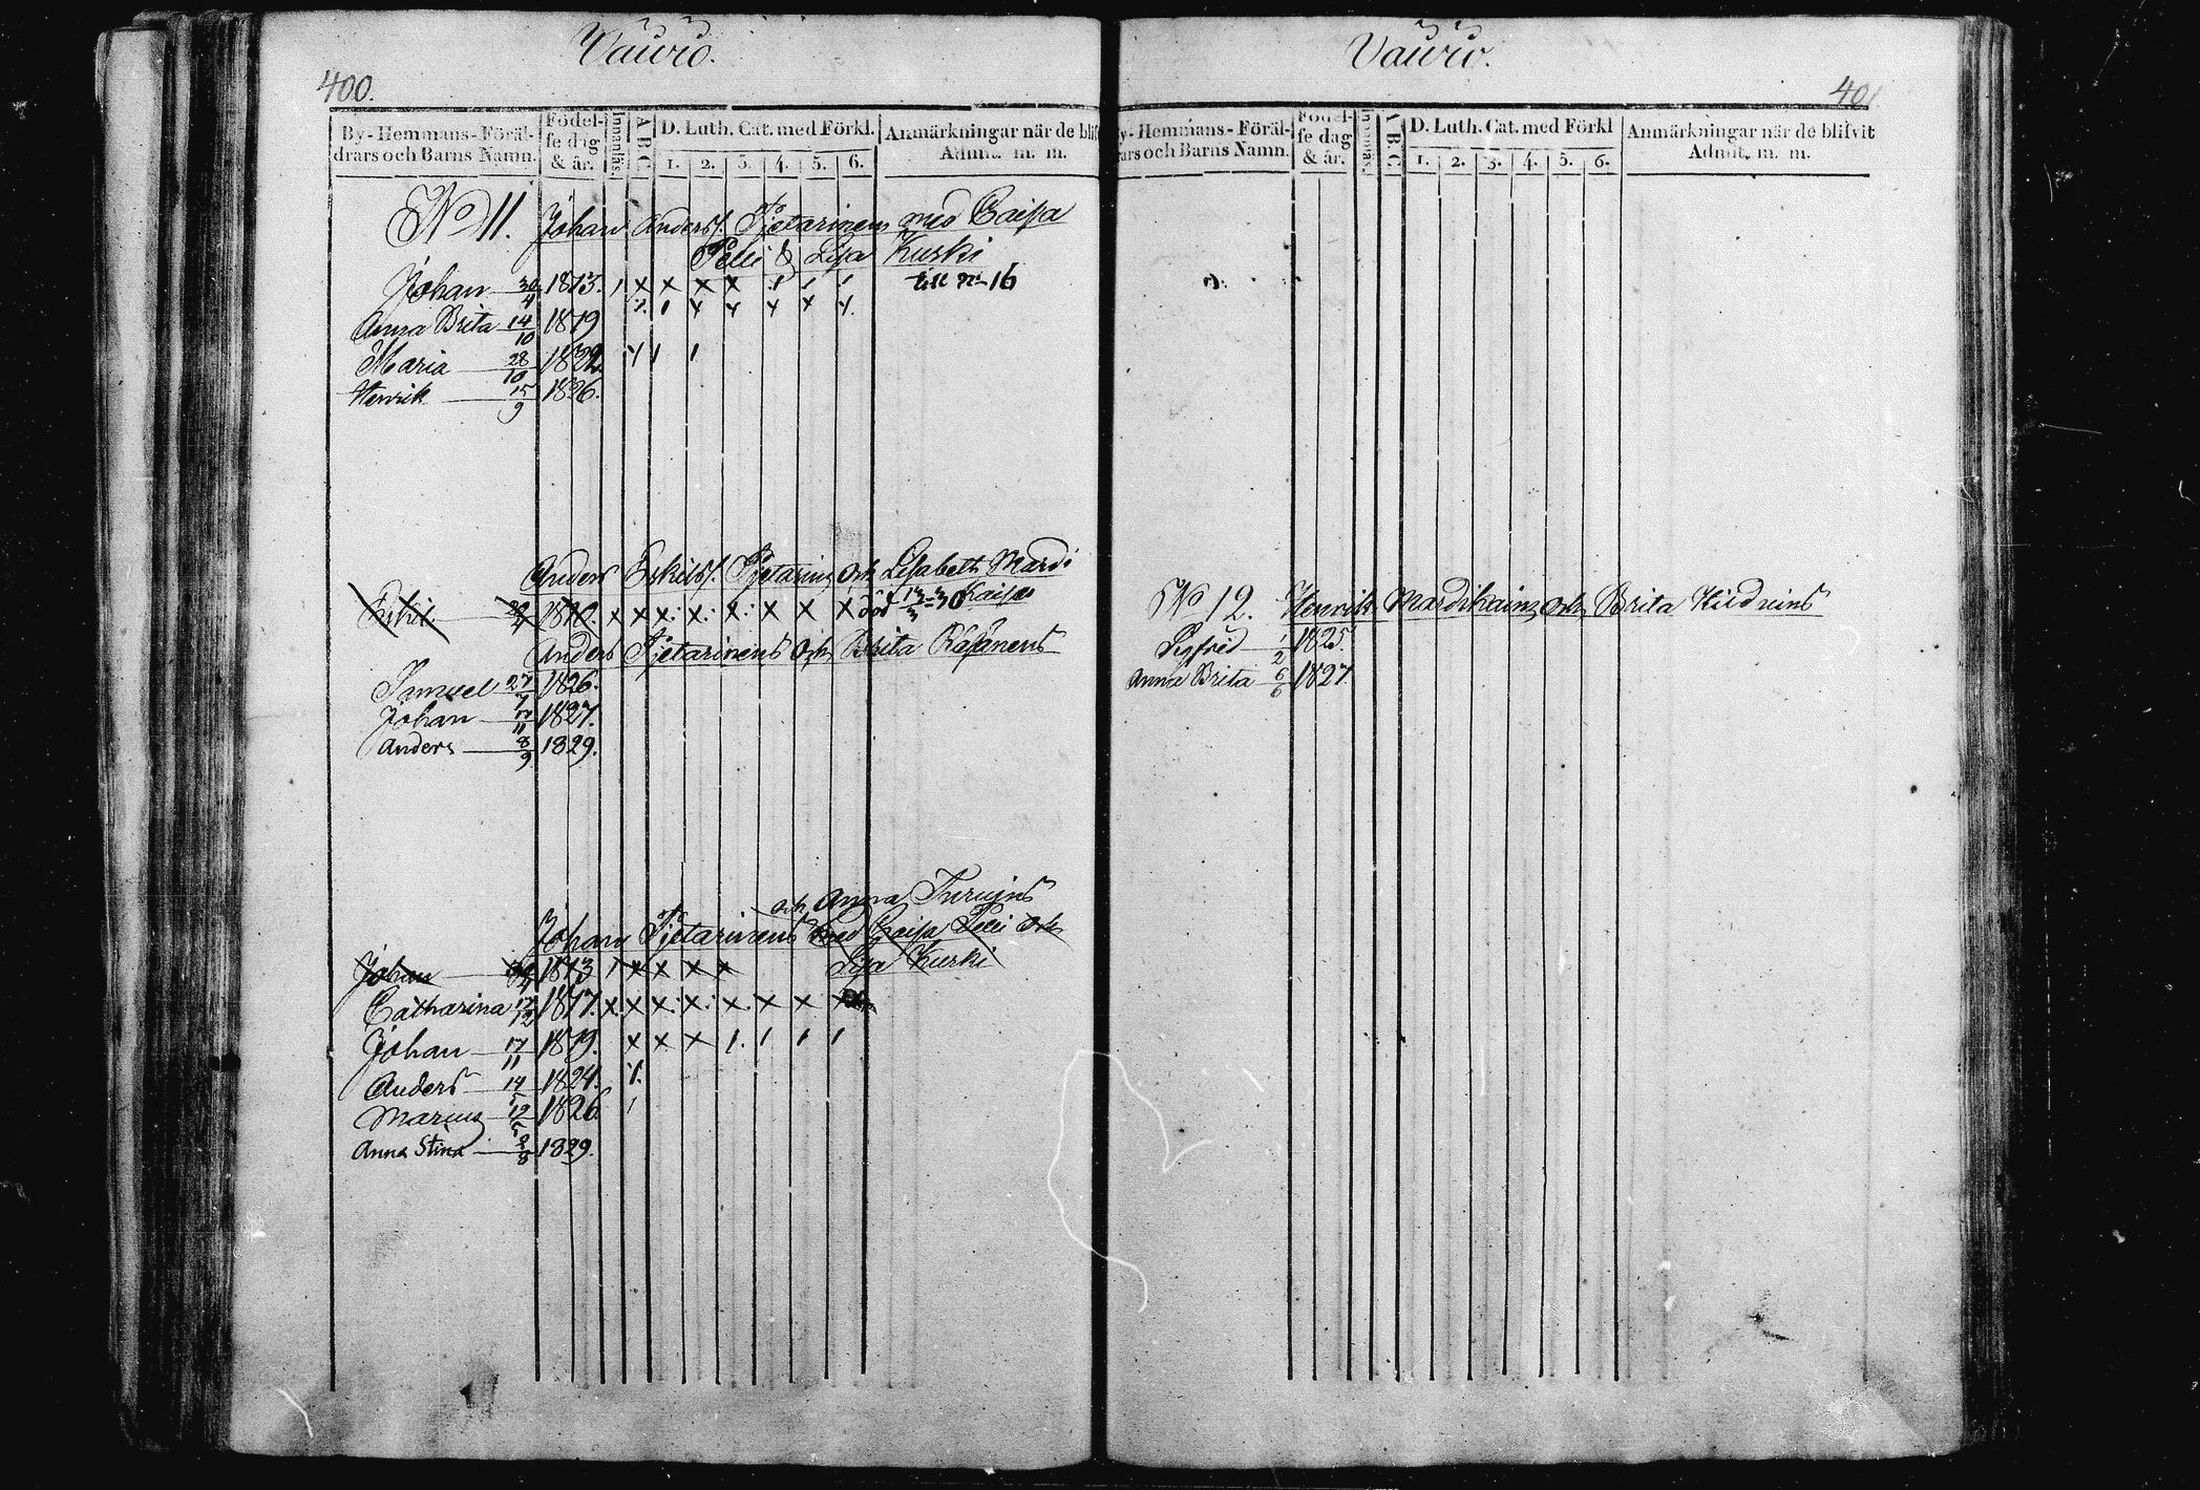 Vaurio.
400.
By-Hemmans-Föräl-
drars och Barns Namn.
Födel-
se dag
& år.
Innanläs
A B C
D. Luth. Cat. med Förkl.
1. 2. 3. 4. 5. 6.
Anmärkningar när de blif
Admit. m. m.
No 11. Johan Anderss. Pjetarinen med Caisa
Pelli & Lisa Kurski
Johan 30/4 1813. till No 16
Anna Brita 14/10 1819
Maria 28/10 1822
Henrik 15/9 1826.
Anders Eskilss. Pjetarinen och Lisabeth Mardi
kais
Eskil 1810. död 13/3 30
Anders Pjetarinens och Brita Räsänens
Samuel 27/7 1826.
Johan 17/11 1827.
Anders 8/9 1829.
och Anna
Johan Pjetarinens med Caisa Pelli och
Lisa Kurski
Johan 1813
Catharina 12/12 1817.
Johan 17/11 1819.
Anders 14 1824.
Marcus 12 1826
Anna Stina 2/8 1829.
Vaurio.
401
y-Hemmans-Föräl-
rars och Barns Namn.
Födel-
se dag
& år.
Innanläs.
A B C
D. Luth. Cat. med Förkl
1. 2. 3. 4. 5. 6.
Anmärkningar när de blifvit
Admit. m. m.
No 12. Henrik Mardikainens och Brita
Sigfrid 1/2 1825.
Anna Brita 6/6 1827.